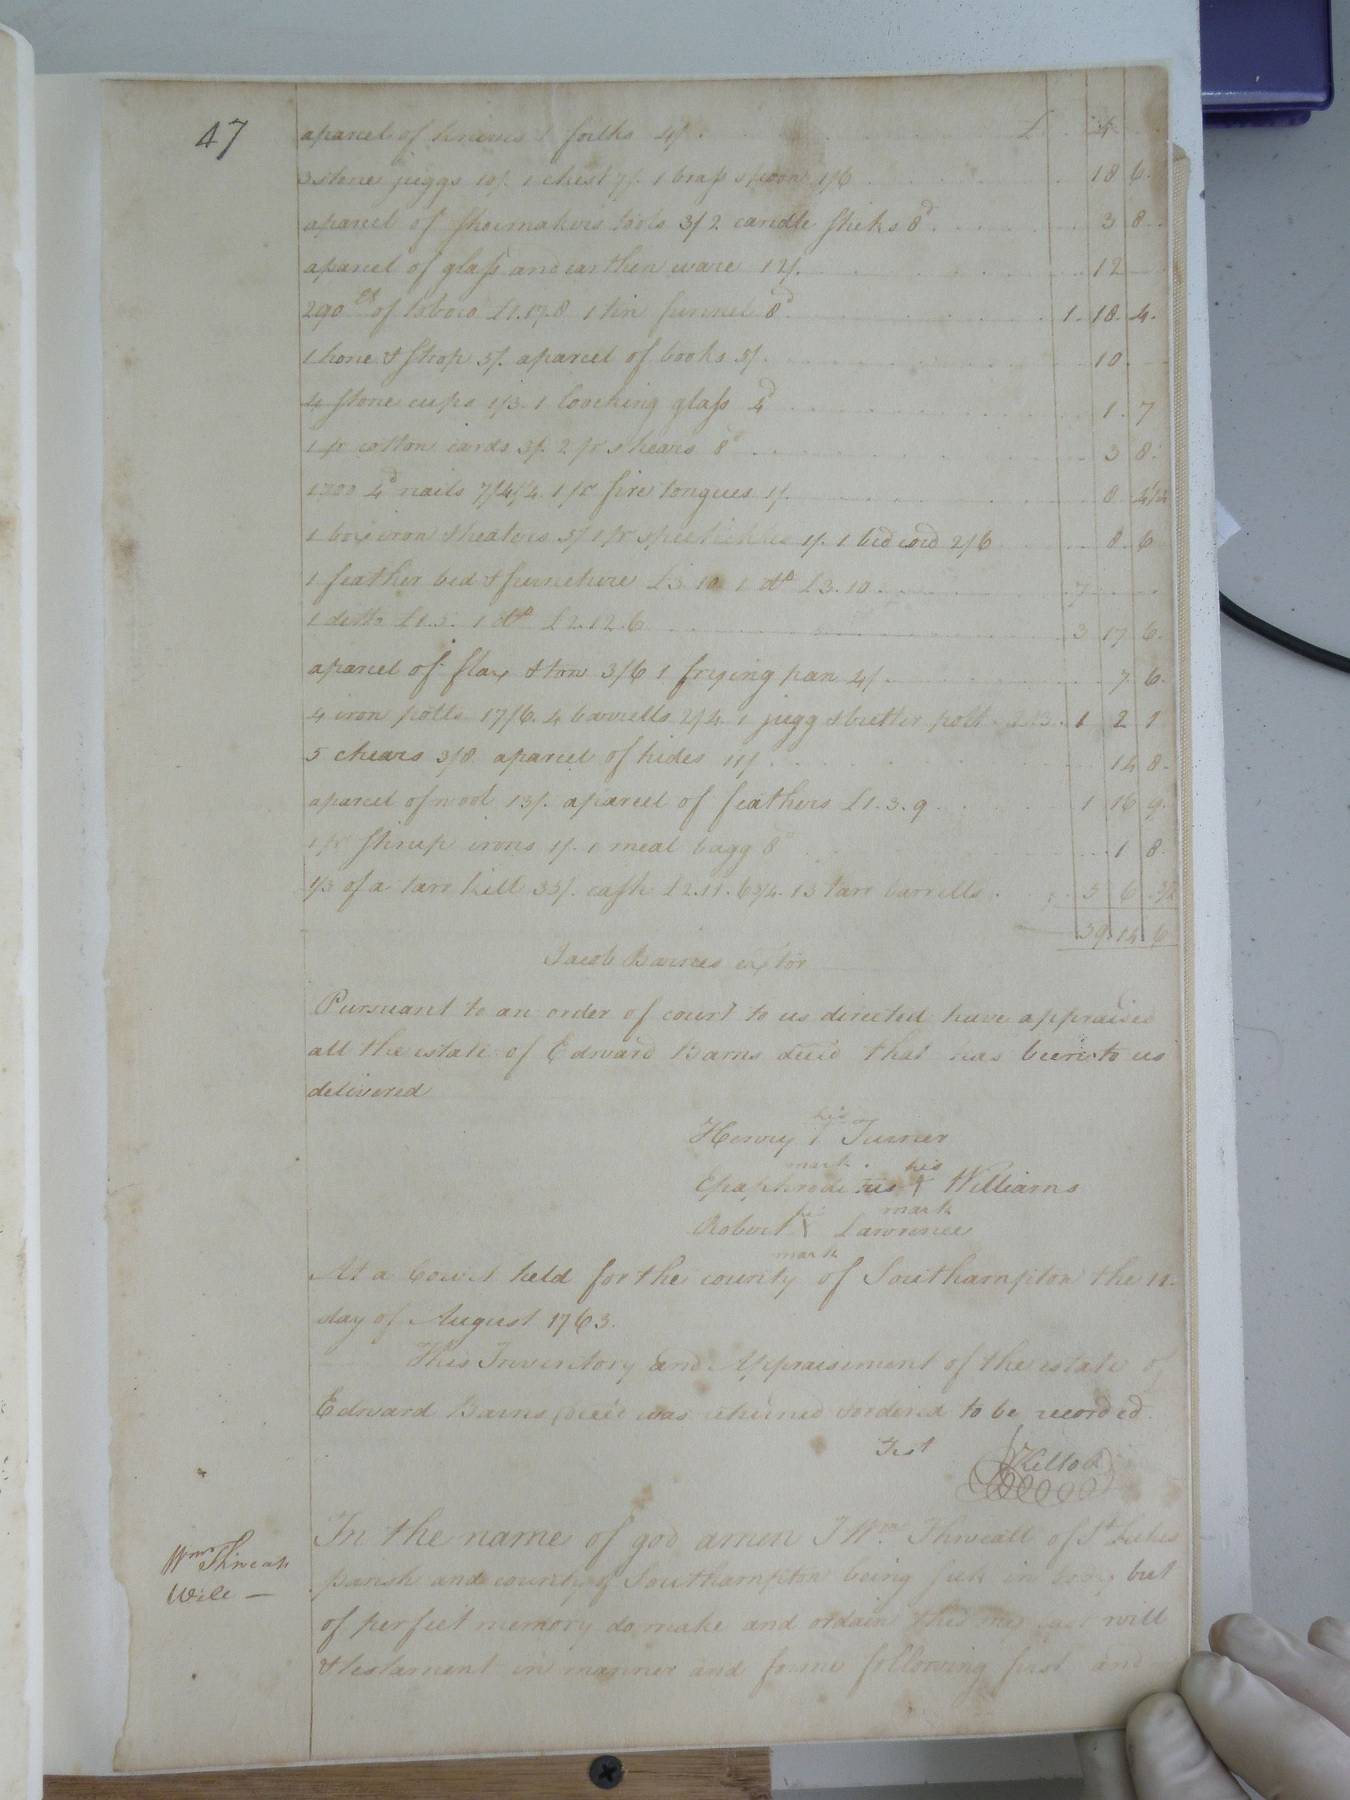 47
aparcel of knives & forks 4/. £ 4
3 stone juggs 10/. 1 chest 7/. 1 brass spoon 1/6 18 6.
aparcel of shoemakers tools 3/ 2 candle sticks 8d. 3 8
aparcel of glass and earthen ware 12/. 12
290 of tobaco £1.17.8 1 tin funnel 8d. 1. 18. 4.
1 hone & strop 5/. aparcel of books 5/. 10
4 stone cups 1/3. 1 loocking glass 4d 1. 7
1 pr cotton cards 3/. 2 pr shears 8d 3 8.
1700 4d nails 7/4 1/2. 1 pr fire tongues 1/. 8 4 1/2
1 box iron & heators 5/ 1 pr 1/. 1 bed cord 2/6 8. 6
1 feather bed & furneture £3.10. 1 do £3.10. 7
1 ditto £1.5. 1 do £2.12.6 3 17 6.
aparcel of flax & tow 3/6 1 frying pan 4/. 7. 6.
4 iron potts 17/6. 4 barrells 2/4. 1 jugg & butter pott 2/3. 1 2 1
5 chears 3/8. aparcel of hides 11/. 14 8.
aparcel of wool 13/. aparcel of feathers £1.3.9 1 16 9.
1 pr stirup irons 1/. 1 meal bagg 8d 1 8.
1/3 of a tarr kill 35/. cash £2.11.6 3/4. 13 tarr barrells. 5 6
39. 14. 6
Jacob Barnes extor
Pursuant to an order of court to us directed have appraised
all the estate of Edward Barns decd that has been to us
delivered
his
Henry T Turner
mark. his
Epaphroditus X Williams
his mark
Robert X Lawrence
mark
At a Court held for the county of Southampton the 11.
day of August 1763.
This Inventory and Appraisement of the estate of
Edward Barns decd was returned & ordered to be recorded.
Test Kello
Wm Threat
Will —
In the name of god amen I Wm. Threall of St Lukes
parish and county of Southampton being sick in body but
of perfect memory do make and ordain this my last will
& testament in manner and forme following first and